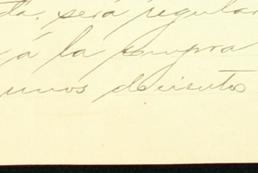 ta. será regular
á la compra
unos doscientos